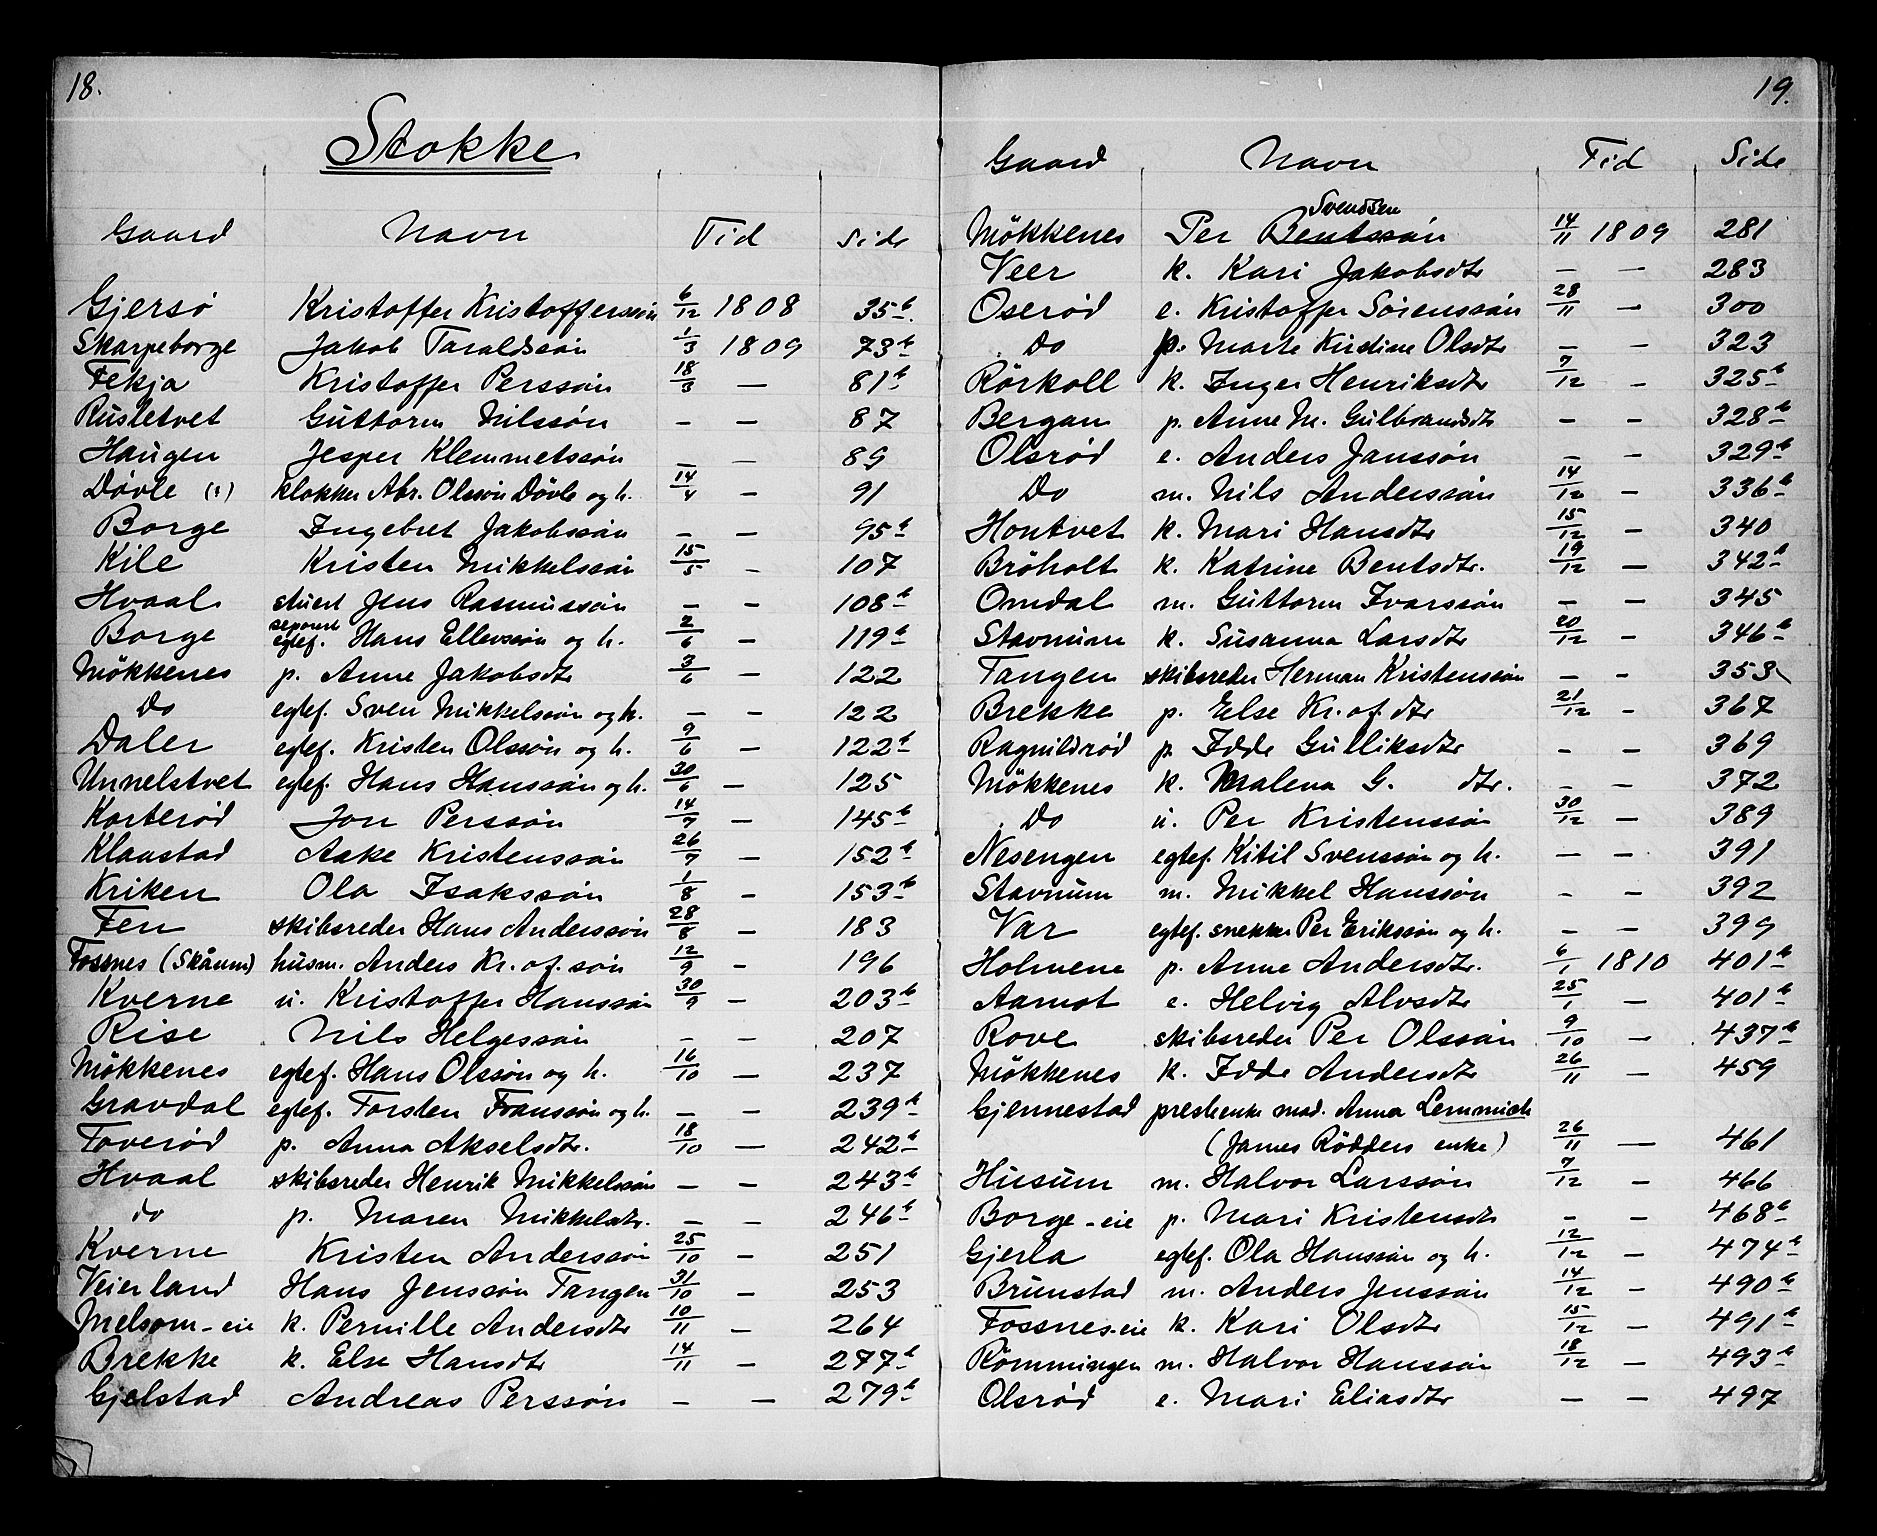 18.
Stokke
Gaard Navn Tid Side
Gjersø Kristoffer Kristofferssøn 6/12 1808 35b
Skarpeborge Jakob Taraldssøn 1/3 1809 73b
Fekja Kristoffer Perssøn 18/3 — 81b
Rusletvet Guttorm Nilssøn — — 87
Haugen Jesper Klemmetssøn — — 89
Døvle (:) klokker Abr. Olssøn Døvle og h. 14/4 — 91
Borge Ingebret Jakobssøn — — 95b
Kile Kristen Mikkelssøn 15/5 — 107
Hvaal stuert Jens Rasmussøn — — 108b
Borge separert egtef. Hans Ellevssøn og h. 2/6 — 119b
Mökkenes p. Anne Jakobsdtr 3/6 — 122
Do egtef. Sven Mikkelssøn og h. — — 122
Daler egtef. Kristen Olssøn og h. 9/6 — 122b
Unnelstvet egtef. Hans Hanssøn og h. 30/6 — 125
Korterød Jon Perssøn 14/7 — 145b
Klaastad Aake Kristenssøn 26/7 — 152b
Kriken Ola Isakssøn 1/8 — 153b
Fen skibsreder Hans Anderssøn 28/8 — 183
Fossnes (Skåum) husm. Anders Kr.of.søn 12/9 — 196
Kverne u. Kristoffer Hanssøn 30/9 — 203b
Rise Nils Helgessøn — — 207
Mökkenes egtef. Hans Olssøn og h. 16/10 — 237
Gravdal egtef. Torsten Franssøn og h. — — 239b
Toverød p. Anna Akselsdtr. 18/10 — 242b
Hvaal skibsreder Henrik Mikkelssøn — — 243b
do p. Maren Mikkelsdtr. — — 246b
Kverne Kristen Anderssøn 25/10 — 251
Veierland Hans Jenssøn Tangen 31/10 — 253
Melsom-eie k. Pernille Andersdtr 10/11 — 264
Brekke k. Else Hansdtr 14/11 — 277b
Gjelstad Andreas Perssøn — — 279b
19.
Gaard Navn Tid Side
Svendsen
Mökkenes Per Bentssøn 14/11 1809 281
Veer k. Kari Jakobsdtr — — 283
Oserød e. Kristoffer Sørenssøn 28/11 — 300
Do p. Marte Kirstine Olsdtr — — 323
Rörkoll k. Inger Henriksdtr 7/12 — 325b
Bergan p. Anne M. Gulbrandsdtr — — 328b
Olsrød e. Anders Janssøn — — 329b
Do m. Nils Anderssøn 14/12 — 336b
Hontvet k. Mari Hansdtr 15/12 — 340
Bröholt k. Katrine Bentsdtr. 19/12 — 342b
Omdal m. Guttorm Ivarssøn — — 345
Stavnum k. Susanna Larsdtr 20/12 — 346b
Tangen skibsreder Herman Kristenssøn — — 353
Brekke p. Else Kr.of.dtr 21/12 — 367
Ragnildrød p. Idde Gulliksdtr — — 369
Mökkenes k. Malena G. dtr. — — 372
Do u. Per Kristenssøn 30/12 — 389
Nesengen egtef. Kitil Svenssøn og h. — — 391
Stavnum m. Mikkel Hanssøn — — 392
Var egtef. snekker Per Erikssøn og h. — — 399
Holmene p. Anne Andersdtr. 6/1 1810 401b
Aamot e. Helvig Alvsdtr 25/1 — 401b
Rove skibsreder Per Olssøn 9/10 — 437b
Mökkenes k. Idde Andersdtr 26/11 — 459
Gjennestad presteenke mad. Anna Lemmich
(James Rödders enke) 26/11 — 461
Husum m. Halvor Larssøn 7/12 — 466
Borge-eie p. Mari Kristensdtr — — 468b
Gjerla egtef. Ola Hanssøn og h. 12/12 — 474b
Brunstad m. Anders Jenssøn 14/12 — 490b
Fossnes-eie k. Kari Olsdtr 15/12 — 491b
Römmingen m. Halvor Hanssøn 18/12 — 493b
Olsrød e. Mari Eliasdtr — — 497